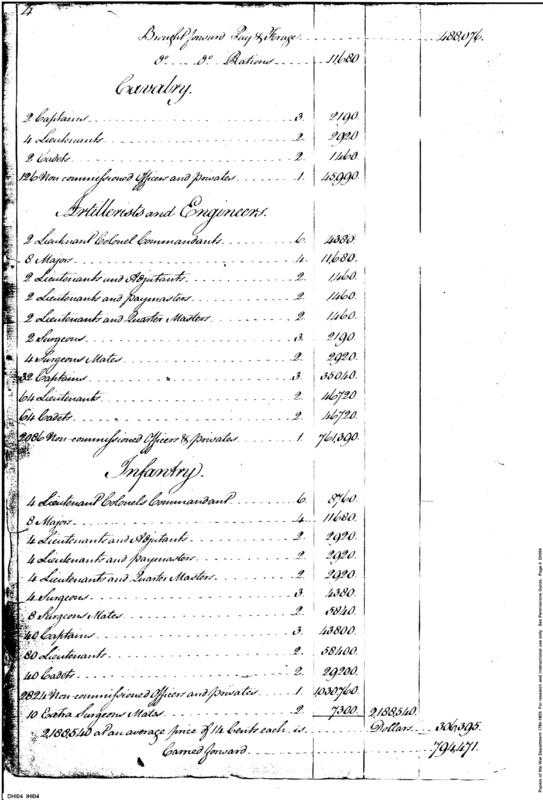 4
Brought forward Pay & Forage 488,076.
do do Rations 11680
Cavalry.
2 Captains 3. 2190.
4 Lieutenants 2. 2920.
2 Cadets 2. 1460.
126 Non commissioned Officers and privates 1. 45990.
Artillerists and Engineers.
2 Lieutenant Colonel Commandants 6. 4380.
8 Majors 4. 11,680.
2 Lieutenants and Adjutants 2. 1460.
2 Lieutenants and paymasters 2. 1460.
2 Lieutenants and Quarter Masters 2. 1460.
2 Surgeons 3. 2190.
4 Surgeons Mates 2. 2920.
32 Captains 3. 35040.
64 Lieutenants 2. 46720
64 Cadets 2. 46720.
2086 Non-commissioned Officers & privates 1. 761390.
Infantry.
4 Lieutenant Colonels Commandant 6. 8760.
8 Majors 4. 11680.
4 Lieutenants and Adjutants 2. 2920.
4 Lieutenants and paymasters 2. 2920.
4 Lieutenants and Quarter Masters 2. 2920.
4 Surgeons 3. 4380.
8 Surgeons Mates 2. 5840.
40 Captains 3. 43800.
80 Lieutenants 2. 58400.
40 Cadets 2. 29200.
2824 Non-commissioned Officers and privates 1. 1030760.
10 Extra Surgeons Mates 2. 7300. 2,188,540.
2,188,540 at an average price of 14 Cents each is Dollars 306,395.
Carried forward 794,471.
DHI04 IHI04
Papers of the War Department 1784-1800. For research and instructional use only. See Permissions Guide. Page 4 DHI04